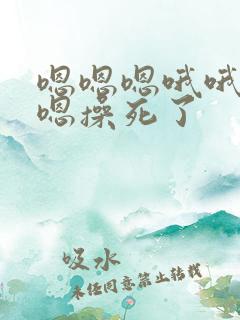 嗯嗯嗯哦哦
嗯操死了
吸水
未经同意禁止转载